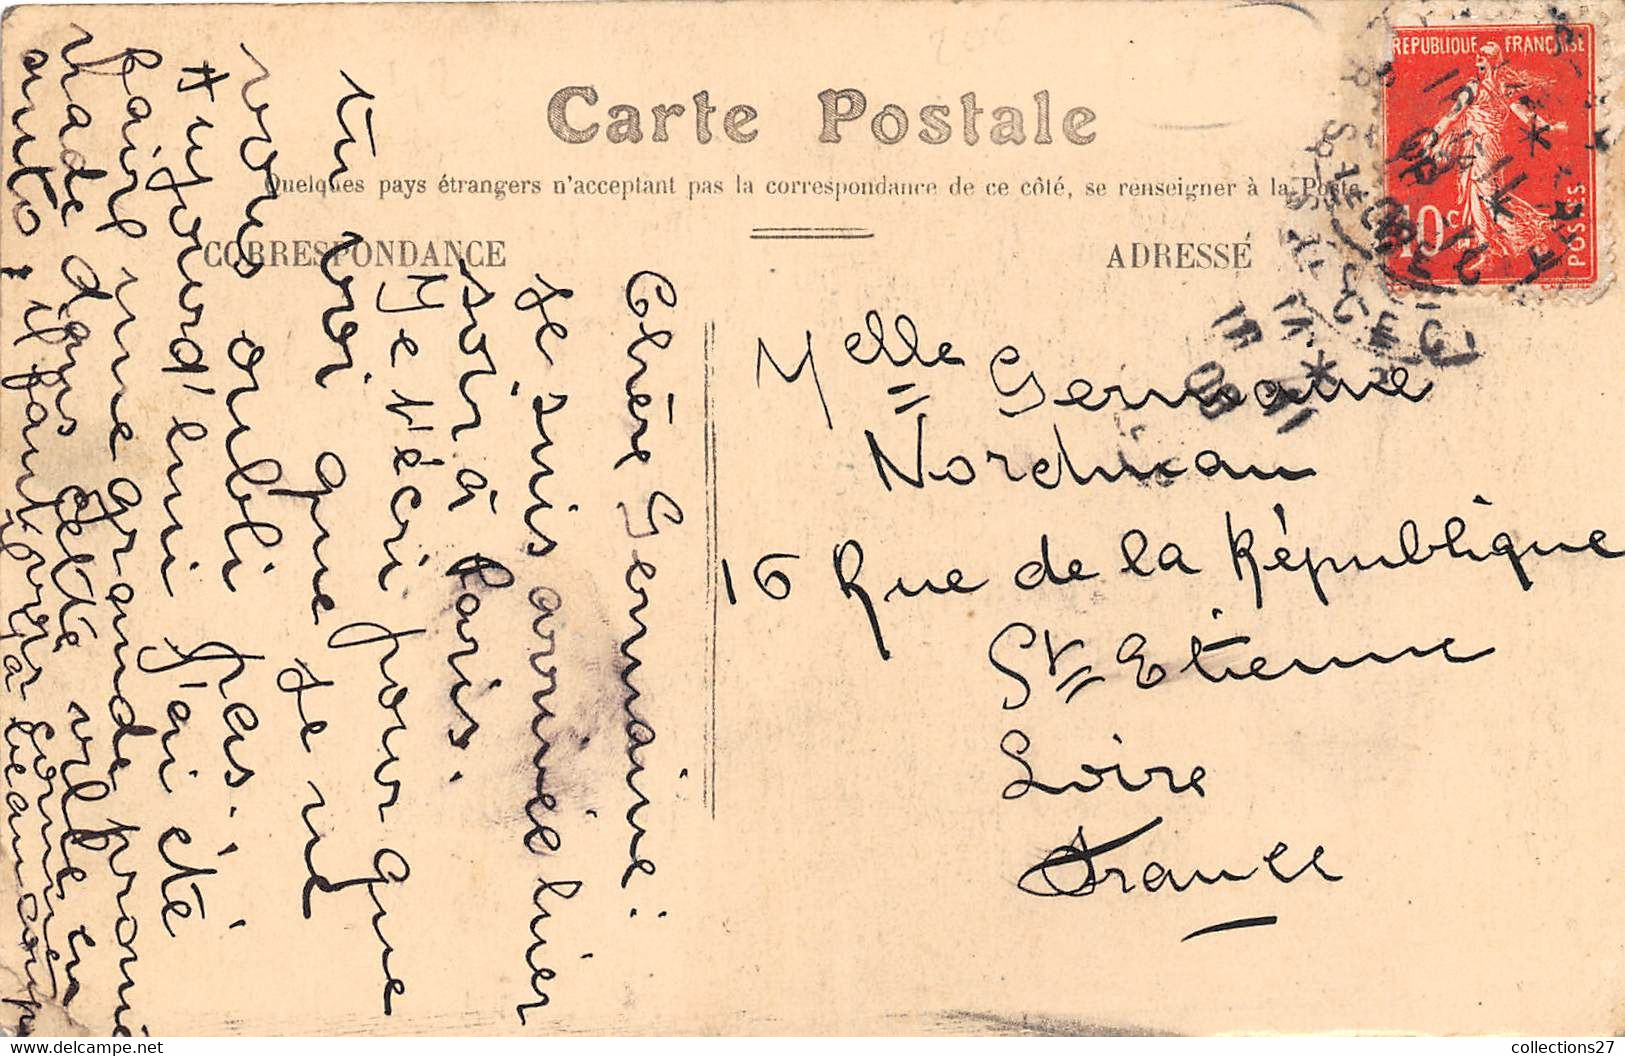 Carte Postale
Quelques pays étrangers n'acceptant pas la correspondance de ce côté, se renseigner à la Poste
CORRESPONDANCE
ADRESSE
REPUBLIQUE FRANÇAISE
10 c
POSTES
Chère Germaine:
Je suis arrivée hier
soir à Paris.
Je t'écri pour que
tu voi que je ne
vous oubli pas.
Aujourd'hui j'ai été
faire une grande
dans cette ville en
auto, il faut
Melle Germaine
Nordman
16 Rue de la République
St Etienne
Loire
France
collections27